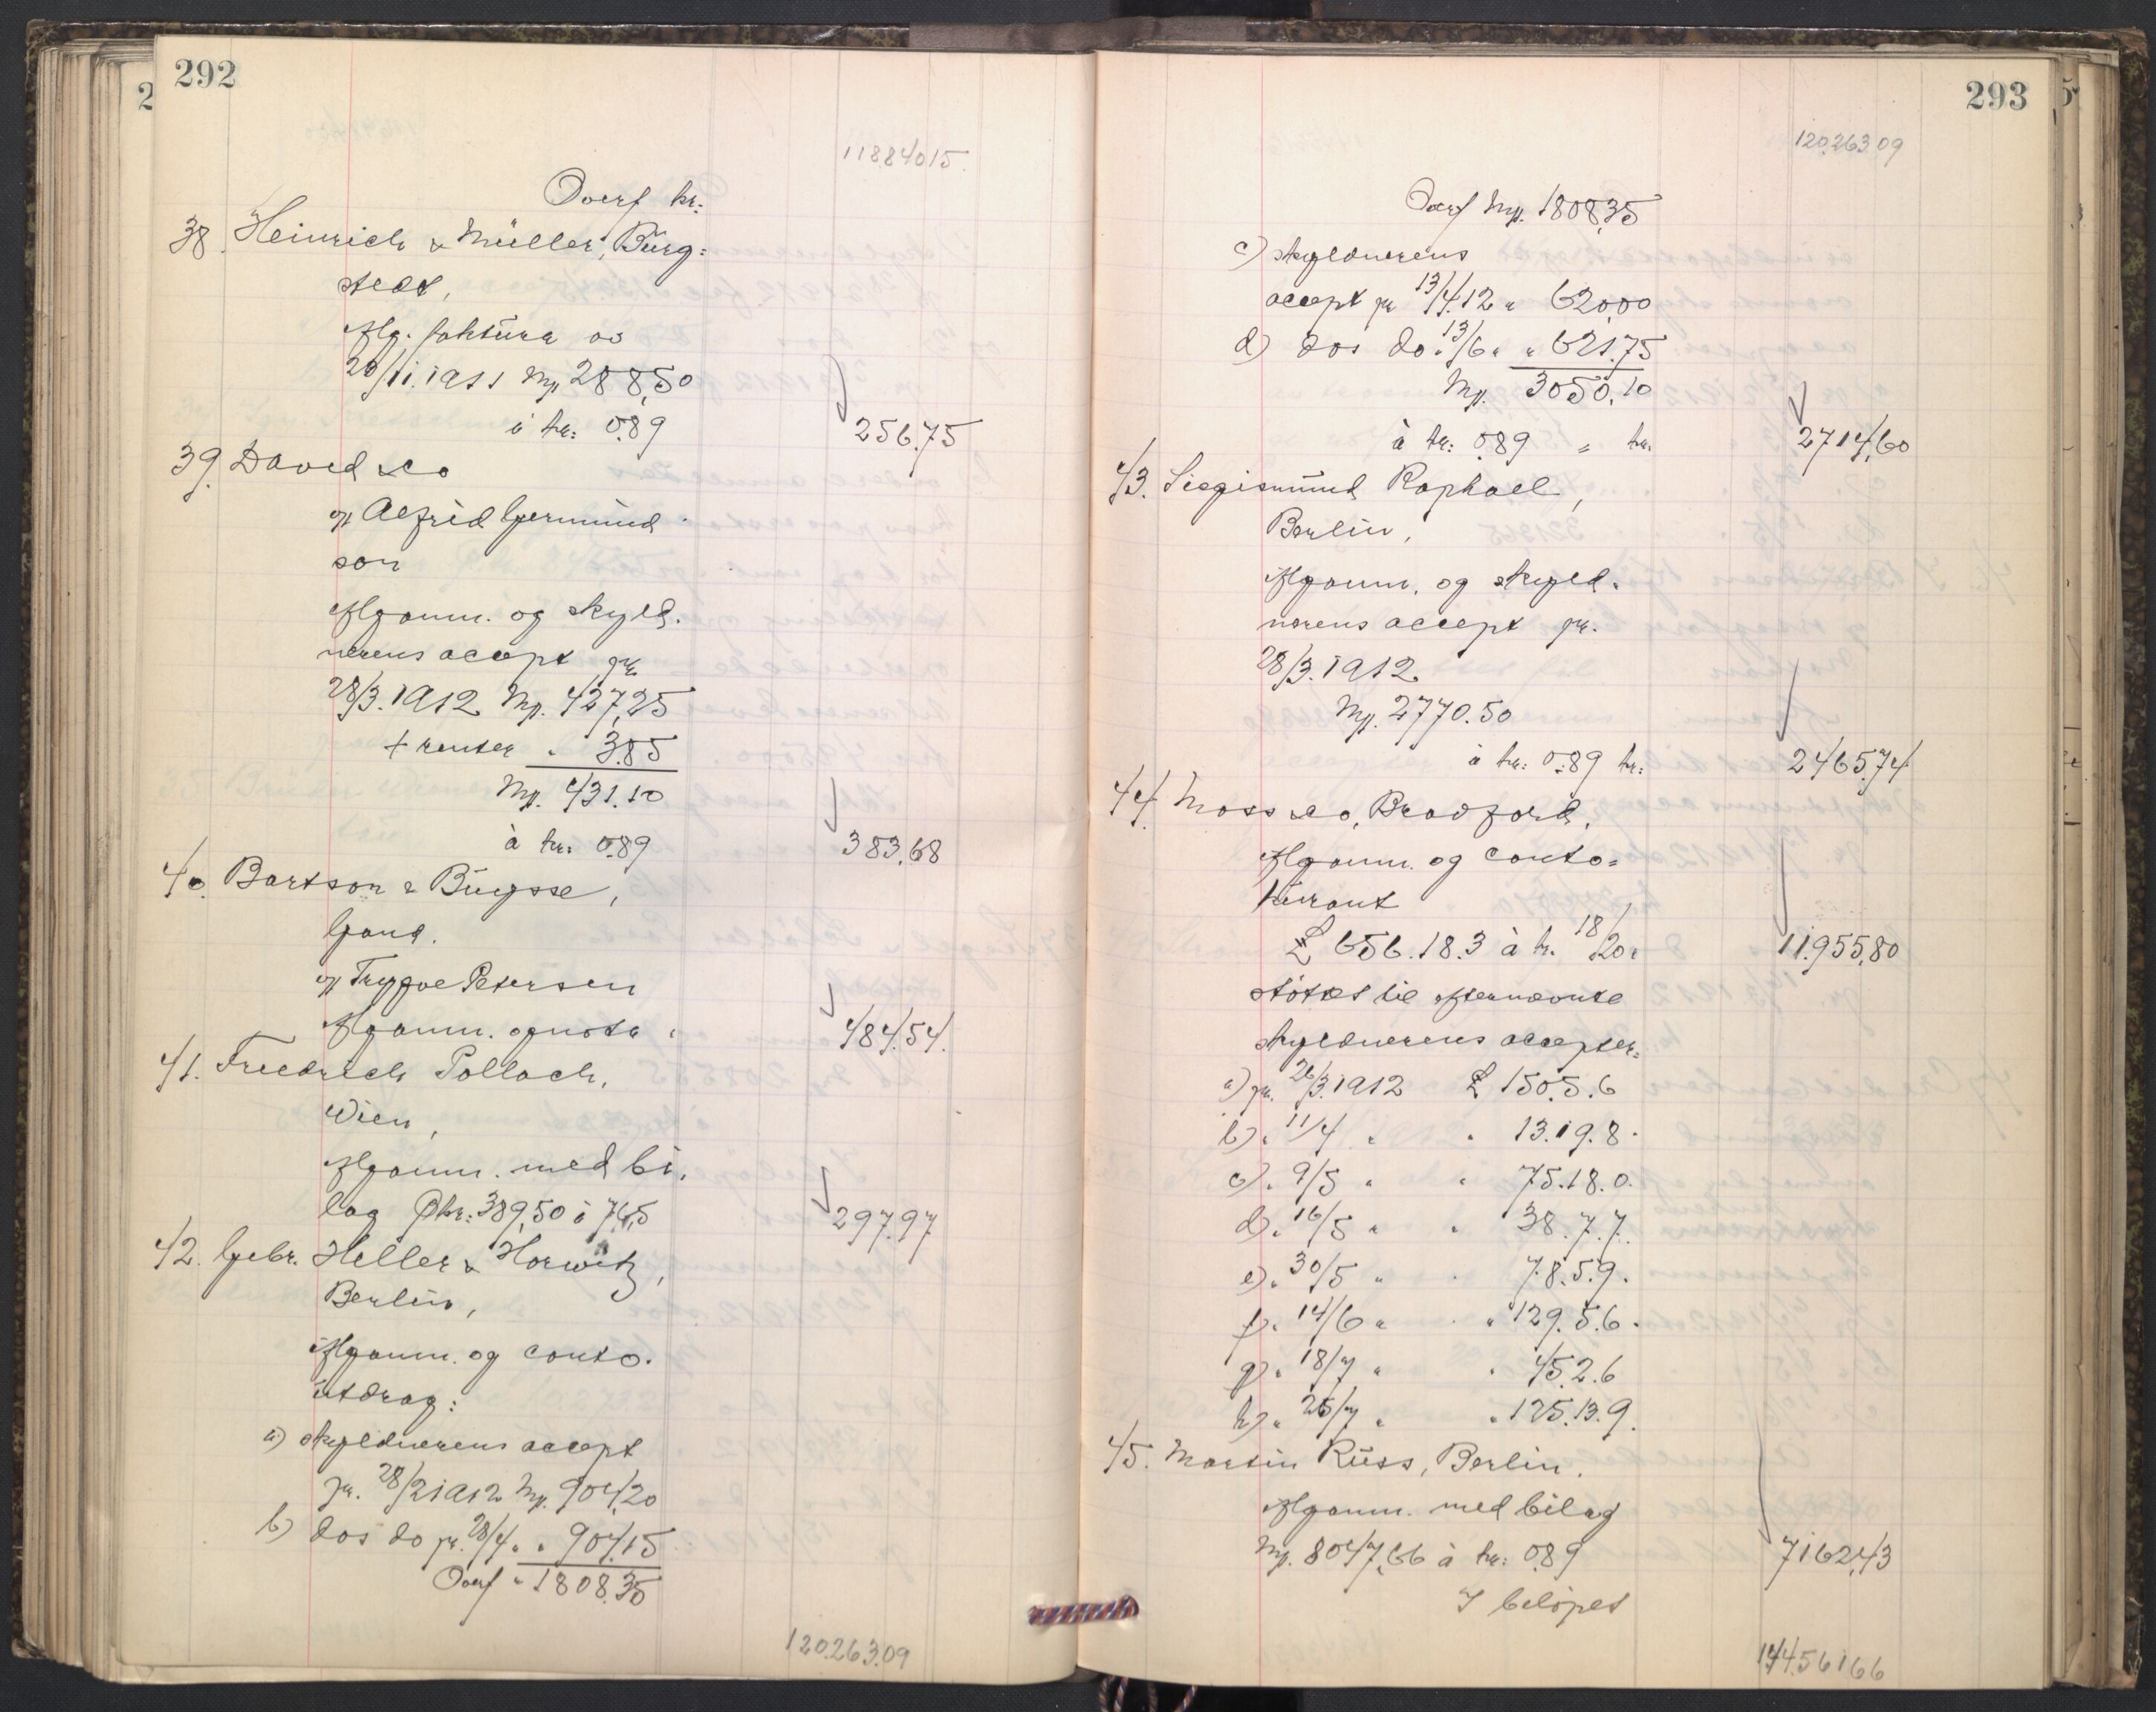 292
118840 15
Overf kr:
38. Heinrich & Müller, Bürg=
stedt,
iflg. faktura av
28/11. 1911 Mp 288,50
à kr: 0.89 256.75
39. David & Co
v/ Alfred Gjermund
son
iflg anm. og skyld.
nerens accept pr
28/3. 1912 Mp. 427,25
+ renter " 3.85
Mp. 431.10
à kr: 0.89 383,68
40. Bartson & Buysse,
Gand.
v/ Trygve Petersen
iflg anm. og nota 484.54.
41. Friedrich Pollack,
Wien,
iflg anm. med bi.
lag Økr: 389,50 à 76,5 297.97
42. Gebr. Heller & Horwitz,
Berlin,
iflg anm. og conto.
utdrag:
a) skyldnerens accept
pr. 28/2 1912 Mp. 904,20
b) dos do pr. 28/4 " " 904.15
Overf " 1808.35
120.263.09
293
120.263 09
Overf Mp. 1808,35
c) skyldnerens
accept pr 13/4.12 " 620,00
d) dos do " 13/6 " " 621.75
Mp. 3050,10
à kr: 0.89 = kr. 2714,60
43. Siegismund Raphael,
Berlin,
iflg anm. og skyld=
nerens accept pr.
28/3. 1912
Mp. 2770.50
à kr: 0.89 kr: 2465,74
44. Moss & Co, Bradford,
iflg anm. og conto=
kurant
£ 656.18.3 à kr. 18/20 " 11.955,80
støttet til efternævnte
skyldnerens accepter:
a) pr. 26/3. 1912 £ 150.5.6
b) " 11/4 " " 13.19.8.
c) " 9/5 " " 75.18.0.
d) " 16/5 " " 38.7.7.
e) " 30/5 " " 78.5.9.
f) " 14/6 " " 129.5.6.
g) " 18/7 " " 45.2.6
h) " 25/7 " " 125.13.9.
45. Martin Russ, Berlin.
iflg anm. med bilag
Mp. 8047,66 à kr: 0.89 7162,43
I beløpet
144.561 66